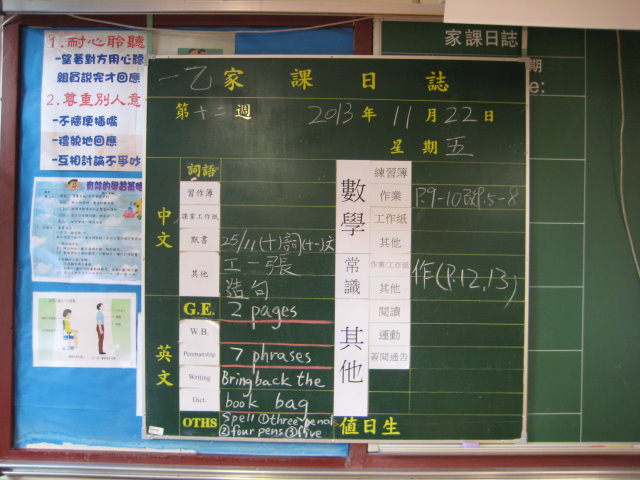 1.耐心聆聽
-望著對方用心聽
組員說完才回應
2.尊重別人意
-不隨便插嘴
-禮貌地回應
-互相討論不爭吵
家課日誌
期
e:
一乙家課日誌
第十二週 2013年11月22日
星期五
中文
詞語
習作簿
課業工作紙
默書 25/11(十)詞(十一)文
其他 工一張
造句
G.E. 2 pages
英文
W.B.
Penmanship 7 phrases
Writing Bring back the
Dict. book bag
OTHS Spell ①three pencils
②four pens ③five
數學
練習簿
作業 P.9-10 P.5-8
工作紙
其他
常識
作業/工作紙 作(P.12,13)
其他
其他
閱讀
運動
簽閱通告
值日生